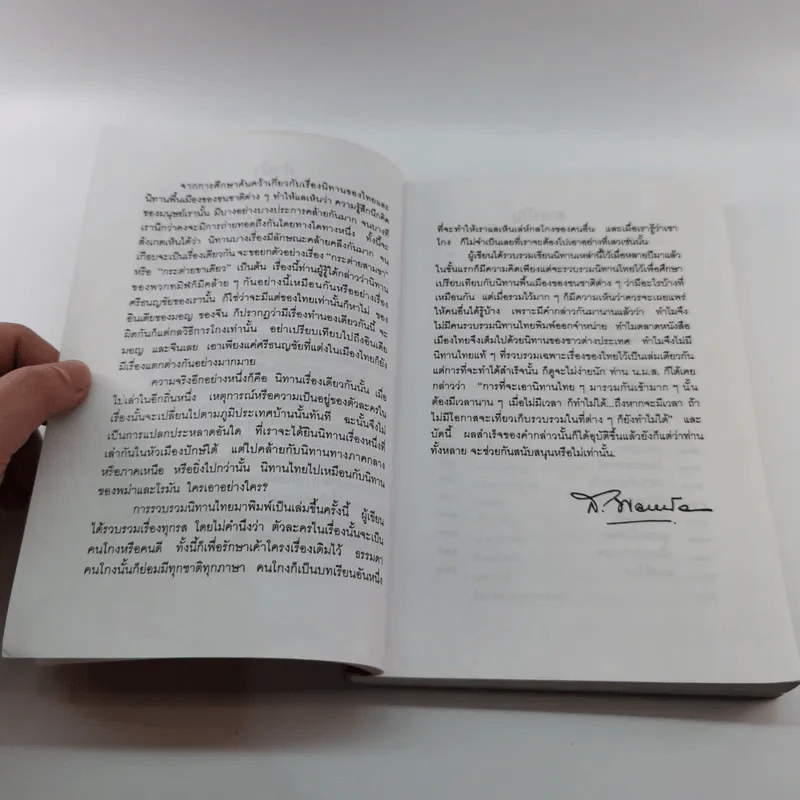 จากการศึกษาค้นคว้าเกี่ยวกับเรื่องนิทานของไทยและ
นิทานพื้นเมืองของชนชาติต่าง ๆ ทำให้แลเห็นว่า ความรู้สึกนึกคิด
ของมนุษย์เรานั้น มีบางอย่างบางประการคล้ายกันมาก จนบางที
เรานึกว่าคงจะมีการถ่ายทอดถึงกันโดยทางใดทางหนึ่ง ทั้งนี้จะ
สังเกตเห็นได้ว่า นิทานบางเรื่องมีลักษณะคล้ายคลึงกันมาก จน
เกือบจะเป็นเรื่องเดียวกัน จะขอยกตัวอย่างเรื่อง "กระต่ายสามขา"
หรือ "กระต่ายขาเดียว" เป็นต้น เรื่องนี้ท่านผู้รู้ได้กล่าวว่านิทาน
ของพวกทมิฬก็มีคล้าย ๆ กันอย่างนี้เหมือนกันหรืออย่างเรื่อง
ศรีธนญชัยของเรานั้น ก็ใช่ว่าจะมีแต่ของไทยเท่านั้นก็หาไม่ ของ
อินเดียของมอญ ของจีน ก็ปรากฏว่ามีเรื่องทำนองเดียวกันนี้ จะ
ผิดกันก็แต่กลวิธีการโกงเท่านั้น อย่าเปรียบเทียบไปถึงอินเดีย
มอญ และจีนเลย เอาเพียงแค่ศรีธนญชัยที่แต่งในเมืองไทยก็ยัง
มีเรื่องแตกต่างกันอย่างมากมาย
ความจริงอีกอย่างหนึ่งก็คือ นิทานเรื่องเดียวกันนั้น เมื่อ
ไปเล่าในอีกถิ่นหนึ่ง เหตุการณ์หรือความเป็นอยู่ของตัวละครใน
เรื่องนั้นจะเปลี่ยนไปตามภูมิประเทศบ้านนั้นทันที ฉะนั้นจึงไม่
เป็นการแปลกประหลาดอันใด ที่เราจะได้ยินนิทานเรื่องหนึ่งที่
เล่ากันในหัวเมืองปักษ์ใต้ แต่ไปคล้ายกับนิทานทางภาคกลาง
หรือภาคเหนือ หรือยิ่งไปกว่านั้น นิทานไทยไปเหมือนกับนิทาน
ของพม่าและโรมัน ใครเอาอย่างใคร?
การรวบรวมนิทานไทยมาพิมพ์เป็นเล่มขึ้นครั้งนี้ ผู้เขียน
ได้รวบรวมเรื่องทุกรส โดยไม่คำนึงว่า ตัวละครในเรื่องนั้นจะเป็น
คนโกงหรือคนดี ทั้งนี้ก็เพื่อรักษาเค้าโครงเรื่องเดิมไว้ ธรรมดา
คนโกงนั้นก็ย่อมมีทุกชาติทุกภาษา คนโกงก็เป็นบทเรียนอันหนึ่ง
ที่จะทำให้เราแลเห็นเล่ห์กลโกงของคนอื่น และเมื่อเรารู้ว่าเขา
โกง ก็ไม่จำเป็นเลยที่เราจะต้องไปเอาอย่างที่เลวเช่นนั้น
ผู้เขียนได้รวบรวมเขียนนิทานเหล่านี้ไว้เมื่อหลายปีมาแล้ว
ในชั้นแรกก็มีความคิดเพียงแต่จะรวบรวมนิทานไทยไว้เพื่อศึกษา
เปรียบเทียบกับนิทานพื้นเมืองของชนชาติต่าง ๆ ว่ามีอะไรบ้างที่
เหมือนกัน แต่เมื่อรวมไว้มาก ๆ ก็มีความเห็นว่าควรจะเผยแพร่
ให้คนอื่นได้รู้บ้าง เพราะมีคำกล่าวกันมานานแล้วว่า ทำไมจึง
ไม่มีคนรวบรวมนิทานไทยพิมพ์ออกจำหน่าย ทำไมตลาดหนังสือ
เมืองไทยจึงเต็มไปด้วยนิทานของชาวต่างประเทศ ทำไมจึงไม่มี
นิทานไทยแท้ ๆ ที่รวบรวมเฉพาะเรื่องของไทยไว้เป็นเล่มเดียวกัน
แต่การที่จะทำได้สำเร็จนั้น ก็ดูจะไม่ง่ายนัก ท่าน น.ม.ส. ก็ได้เคย
กล่าวว่า "การที่จะเอานิทานไทย ๆ มารวมกันเข้ามาก ๆ นั้น
ต้องมีเวลานาน ๆ เมื่อไม่มีเวลา ก็ทำไม่ได้...ถึงหากจะมีเวลา ถ้า
ไม่มีโอกาสจะเที่ยวเก็บรวบรวมในที่ต่าง ๆ ก็ยังทำไม่ได้" และ
บัดนี้ ผลสำเร็จของคำกล่าวนั้นก็ได้อุบัติขึ้นแล้วยังก็แต่ว่าท่าน
ทั้งหลาย จะช่วยกันสนับสนุนหรือไม่เท่านั้น.